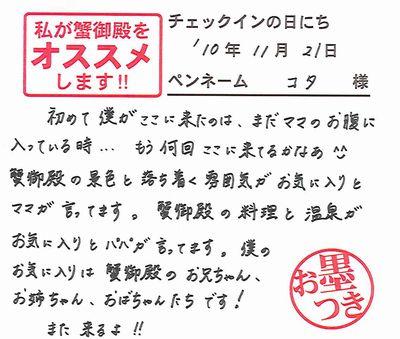 私が蟹御殿を
オススメ
します!!
チェックインの日にち
'10年 11月 21日
ペンネーム コタ 様
初めて僕がここに来たのは、まだママのお腹に
入っている時… もう何回ここに来てるかなあ ^^
蟹御殿の景色と落ち着く雰囲気がお気に入りと
ママが言ってます。蟹御殿の料理と温泉が
お気に入りとパパが言ってます。僕の
お気に入りは蟹御殿のお兄ちゃん、
お姉ちゃん、おばちゃんたちです!
また来るよ!!
お墨つき